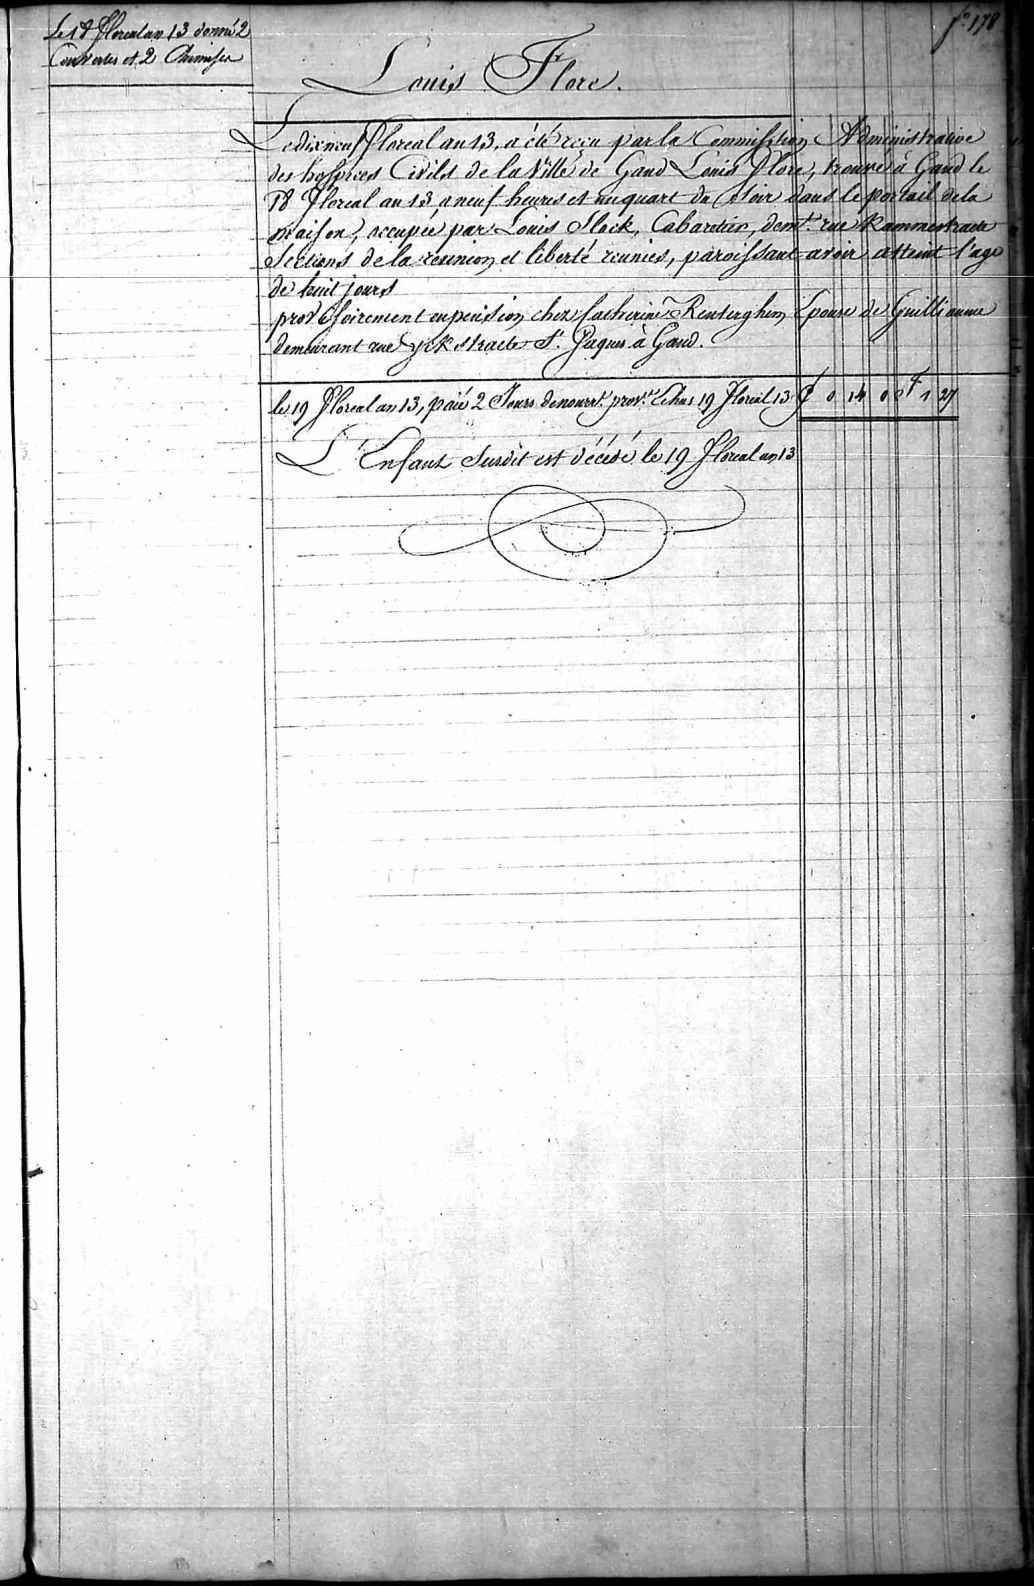 fo 178
Le 18 floreal an 13 donné 2
Couvertes et 2 Chemises
Louis Flore.
Le dix neuf floreal an 13, a été reçu par la Commission Administrative
des hospices Civils de la Ville de Gand Louis Flore, trouvé à Gand le
18 floreal an 13, a neuf heures et un quart du Soir dans le portail de la
maison, occupée par Louis Slock, Cabaretier, demt. rue Rammestraete
Sections de la reunion et liberté reunies, paroissant avoir atteint l'age
de huit jours
provisoirement en pension chez Catherine Renterghem Epouse de Guilliaume
demeurant rue St. Jaques à Gand.
le 19 floreal an 13, paié 2 Jours de nourre. prov.re Echus 19 floreal 13 £ 0 14 0 f 1 27
L'Enfant Susdit est décédé le 19 floreal an 13